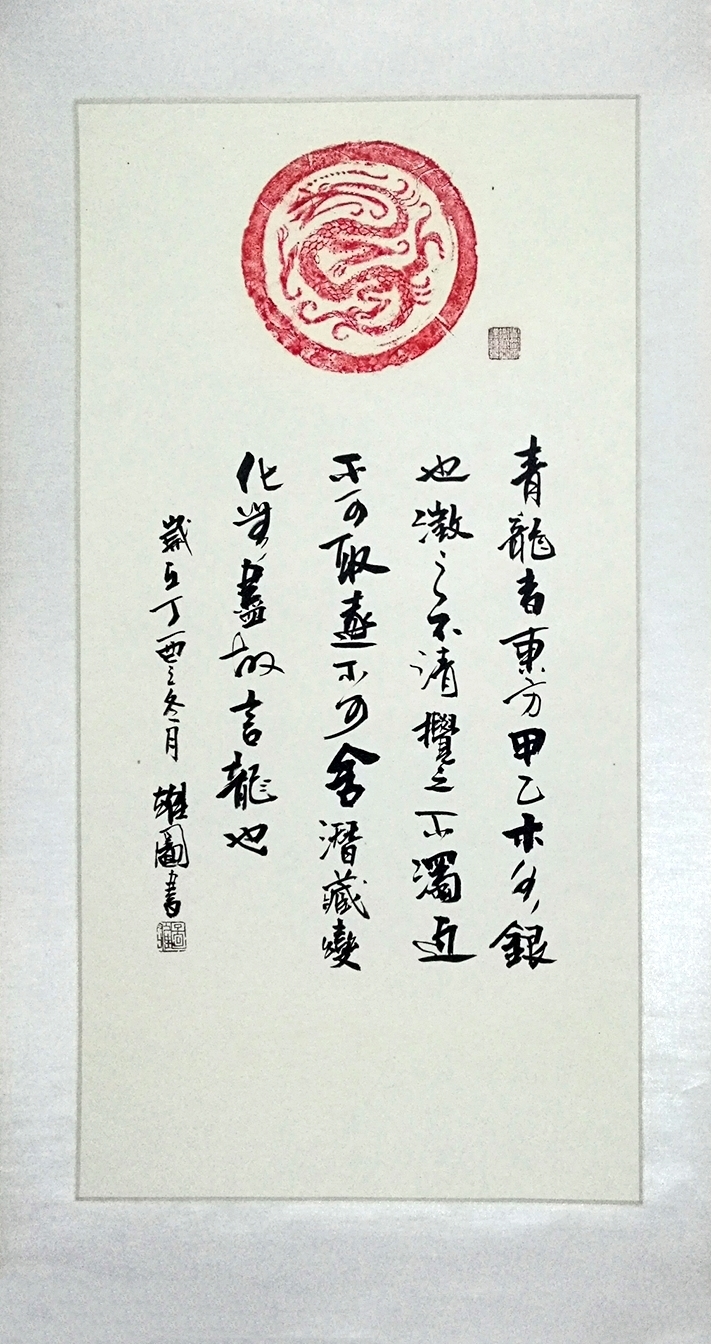 青龍者東方甲乙木水銀
也澂之不清攪之不濁近
不可取遠不可舍潛藏變
化無盡故言龍也
歲在丁酉之冬月
雄圖書